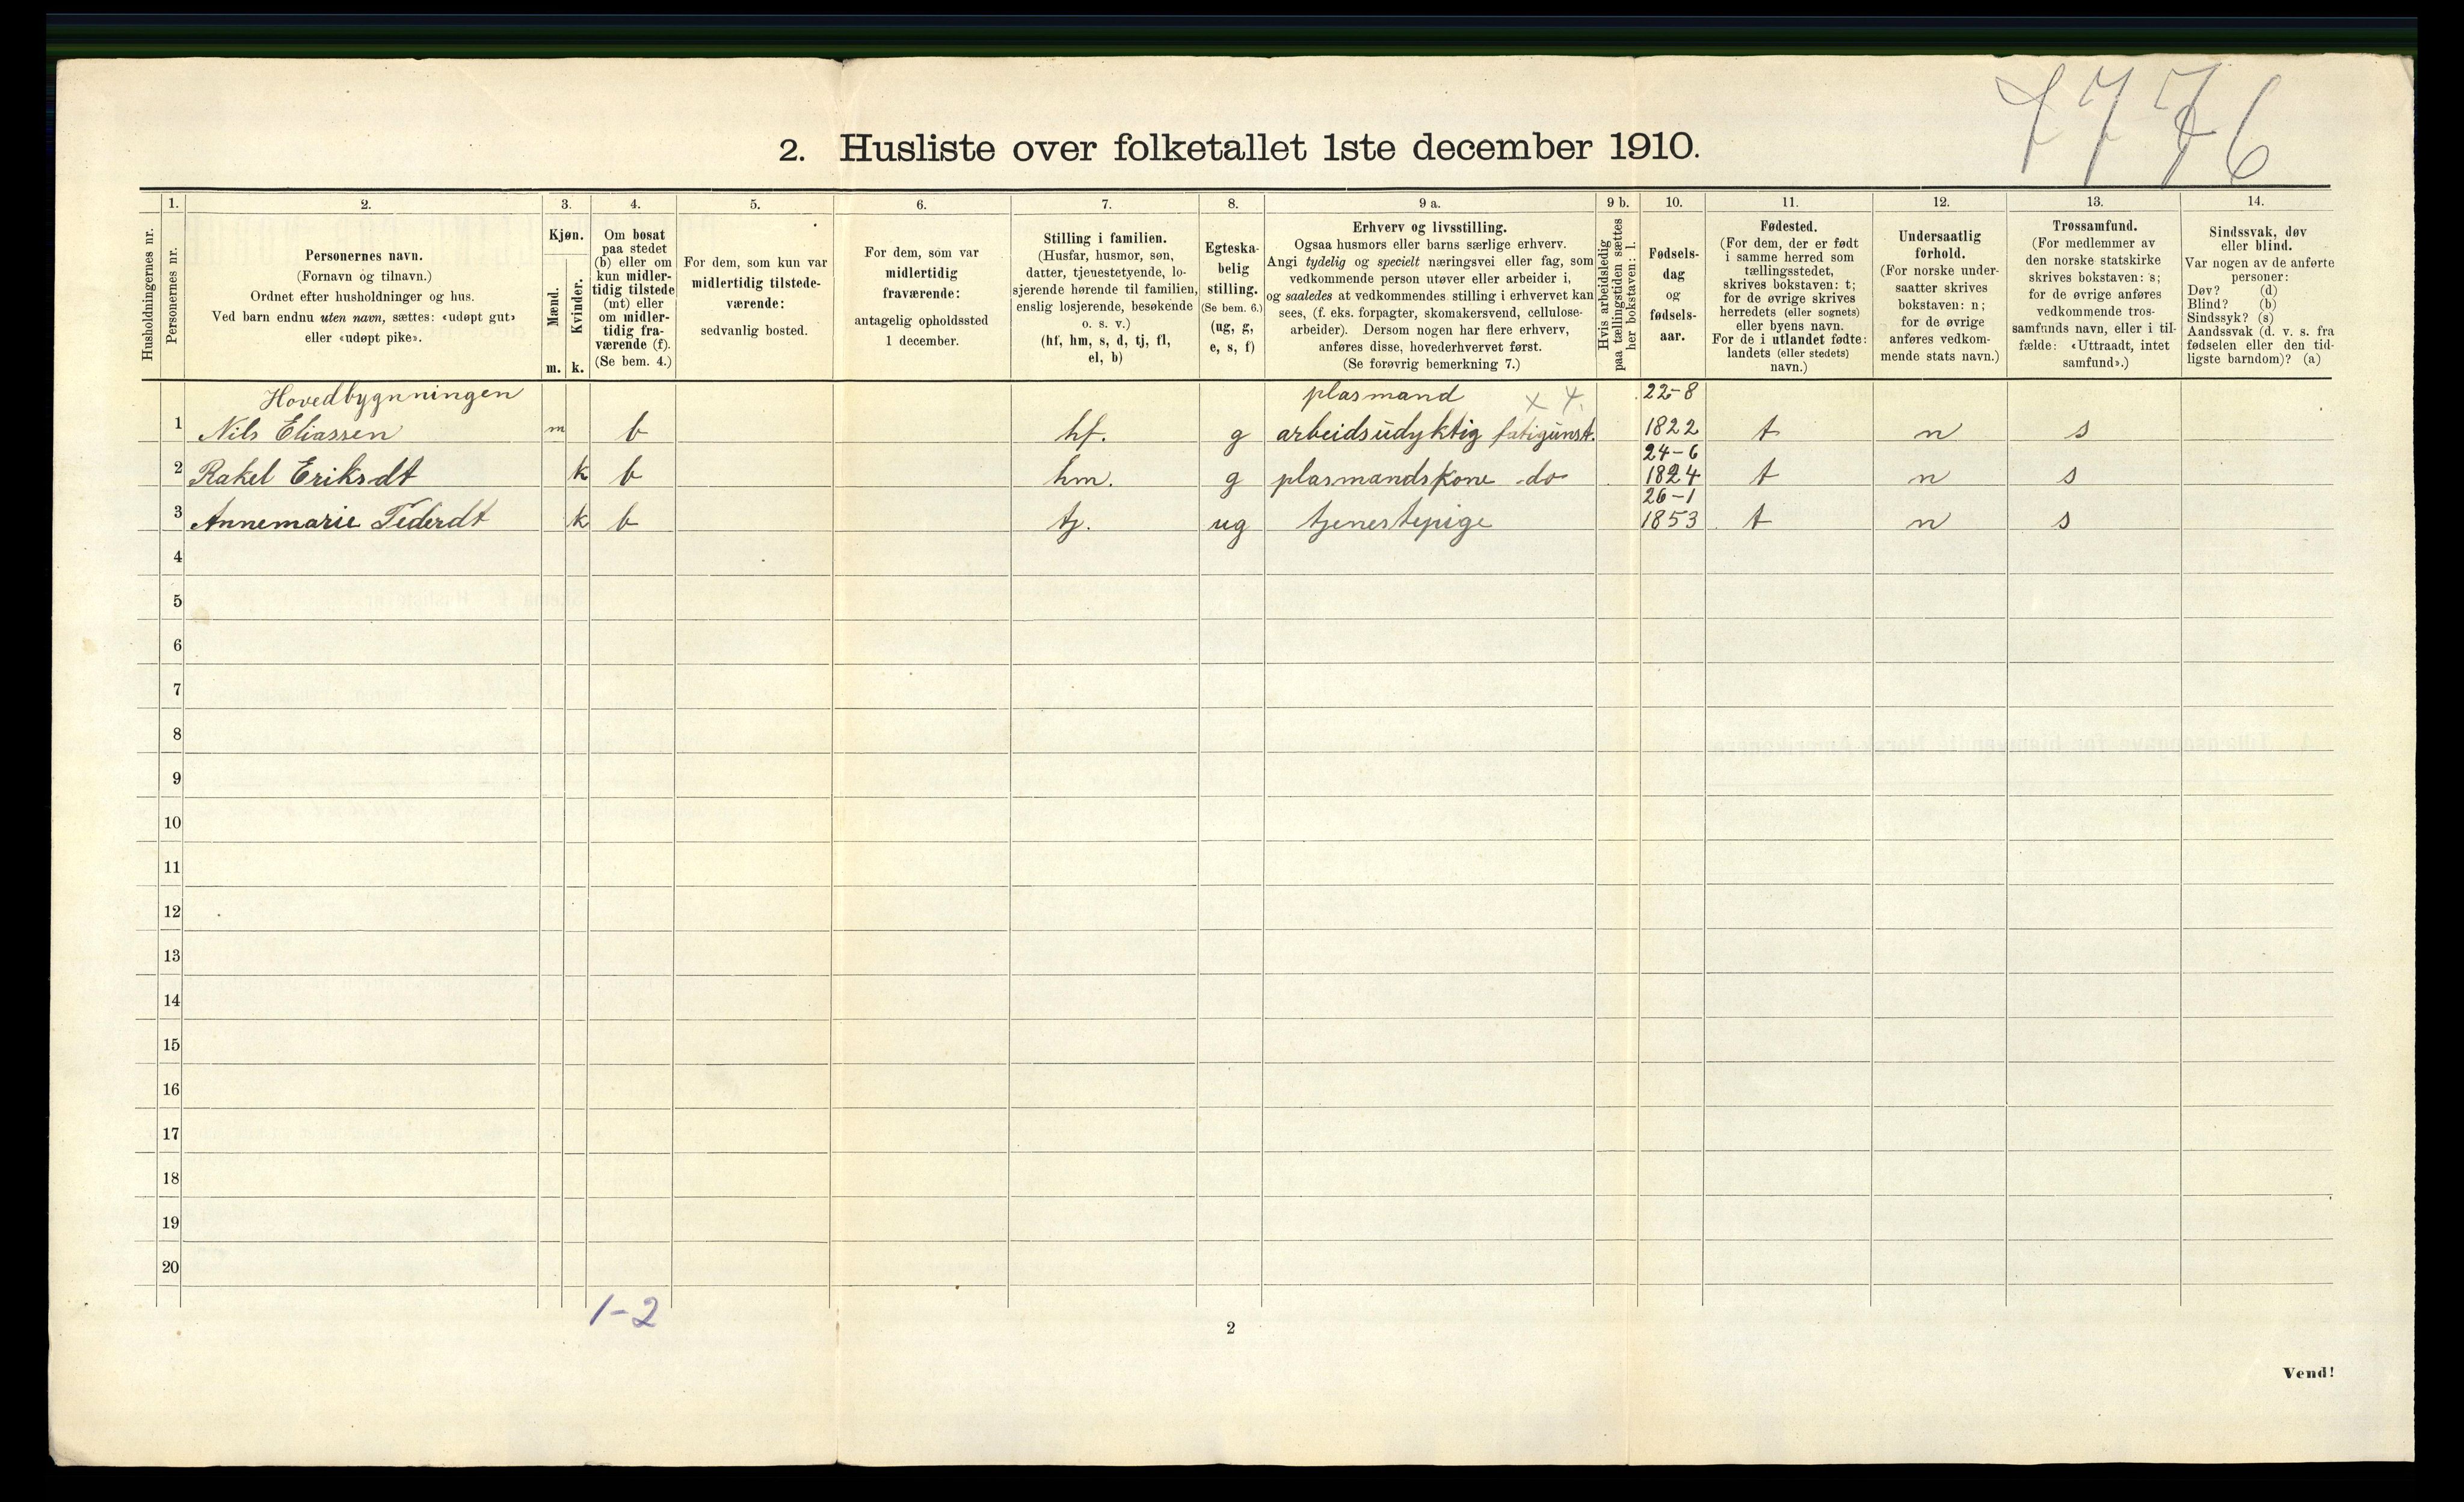 7776
2. Husliste over folketallet 1ste december 1910.
Husholdningernes nr.
1.
Personernes nr.
2.
Personernes navn.
(Fornavn og tilnavn.)
Ordnet efter husholdninger og hus.
Ved barn endnu uten navn, sættes: «udøpt gut»
eller «udøpt pike».
3.
Kjøn.
Mænd.
m.
Kvinder.
k.
4.
Om bosat
paa stedet
(b) eller om
kun midler-
tidig tilstede
(mt) eller
om midler-
tidig fra-
værende (f).
(Se bem. 4.)
5.
For dem, som kun var
midlertidig tilstede-
værende:
sedvanlig bosted.
6.
For dem, som var
midlertidig
fraværende:
antagelig opholdssted
1 december.
7.
Stilling i familien.
(Husfar, husmor, søn,
datter, tjenestetyende, lo-
sjerende hørende til familien,
enslig losjerende, besøkende
o. s. v.)
(hf, hm, s, d, tj, fl,
el, b)
8.
Egteska-
belig
stilling.
(Se bem. 6.)
(ug, g,
e, s, f)
9 a.
Erhverv og livsstilling.
Ogsaa husmors eller barns særlige erhverv.
Angi tydelig og specielt næringsvei eller fag, som
vedkommende person utøver eller arbeider i,
og saaledes at vedkommendes stilling i erhvervet kan
sees, (f. eks. forpagter, skomakersvend, cellulose-
arbeider). Dersom nogen har flere erhverv,
anføres disse, hovederhvervet først.
(Se forøvrig bemerkning 7.)
9 b.
Hvis arbeidsledig
paa tællingstiden sættes
her bokstaven: l.
10.
Fødsels-
dag
og
fødsels-
aar.
11.
Fødested.
(For dem, der er født
i samme herred som
tællingsstedet,
skrives bokstaven: t;
for de øvrige skrives
herredets (eller sognets)
eller byens navn.
For de i utlandet fødte:
landets (eller stedets)
navn.)
12.
Undersaatlig
forhold.
(For norske under-
saatter skrives
bokstaven: n;
for de øvrige
anføres vedkom-
mende stats navn.)
13.
Trossamfund.
(For medlemmer av
den norske statskirke
skrives bokstaven: s;
for de øvrige anføres
vedkommende tros-
samfunds navn, eller i til-
fælde: «Uttraadt, intet
samfund».)
14.
Sindssvak, døv
eller blind.
Var nogen av de anførte
personer:
Døv? (d)
Blind? (b)
Sindssyk? (s)
Aandssvak (d. v. s. fra
fødselen eller den tid-
ligste barndom)? (a)
Hovedbygnningen plasmand x 4. 22-8
1 Nils Eliassen m b hf. g arbeidsudyktig fatigunst. 1822 t n s
24-6
2 Rakel Eriksdt k b hm. g plasmandskone do 1824 t n s
26-1
3 Annemarie Tederdt k b tj. ug tjenestepige 1853 t n s
4
5
6
7
8
9
10
11
12
13
14
15
16
17
18
19
20
1-2
2
Vend!